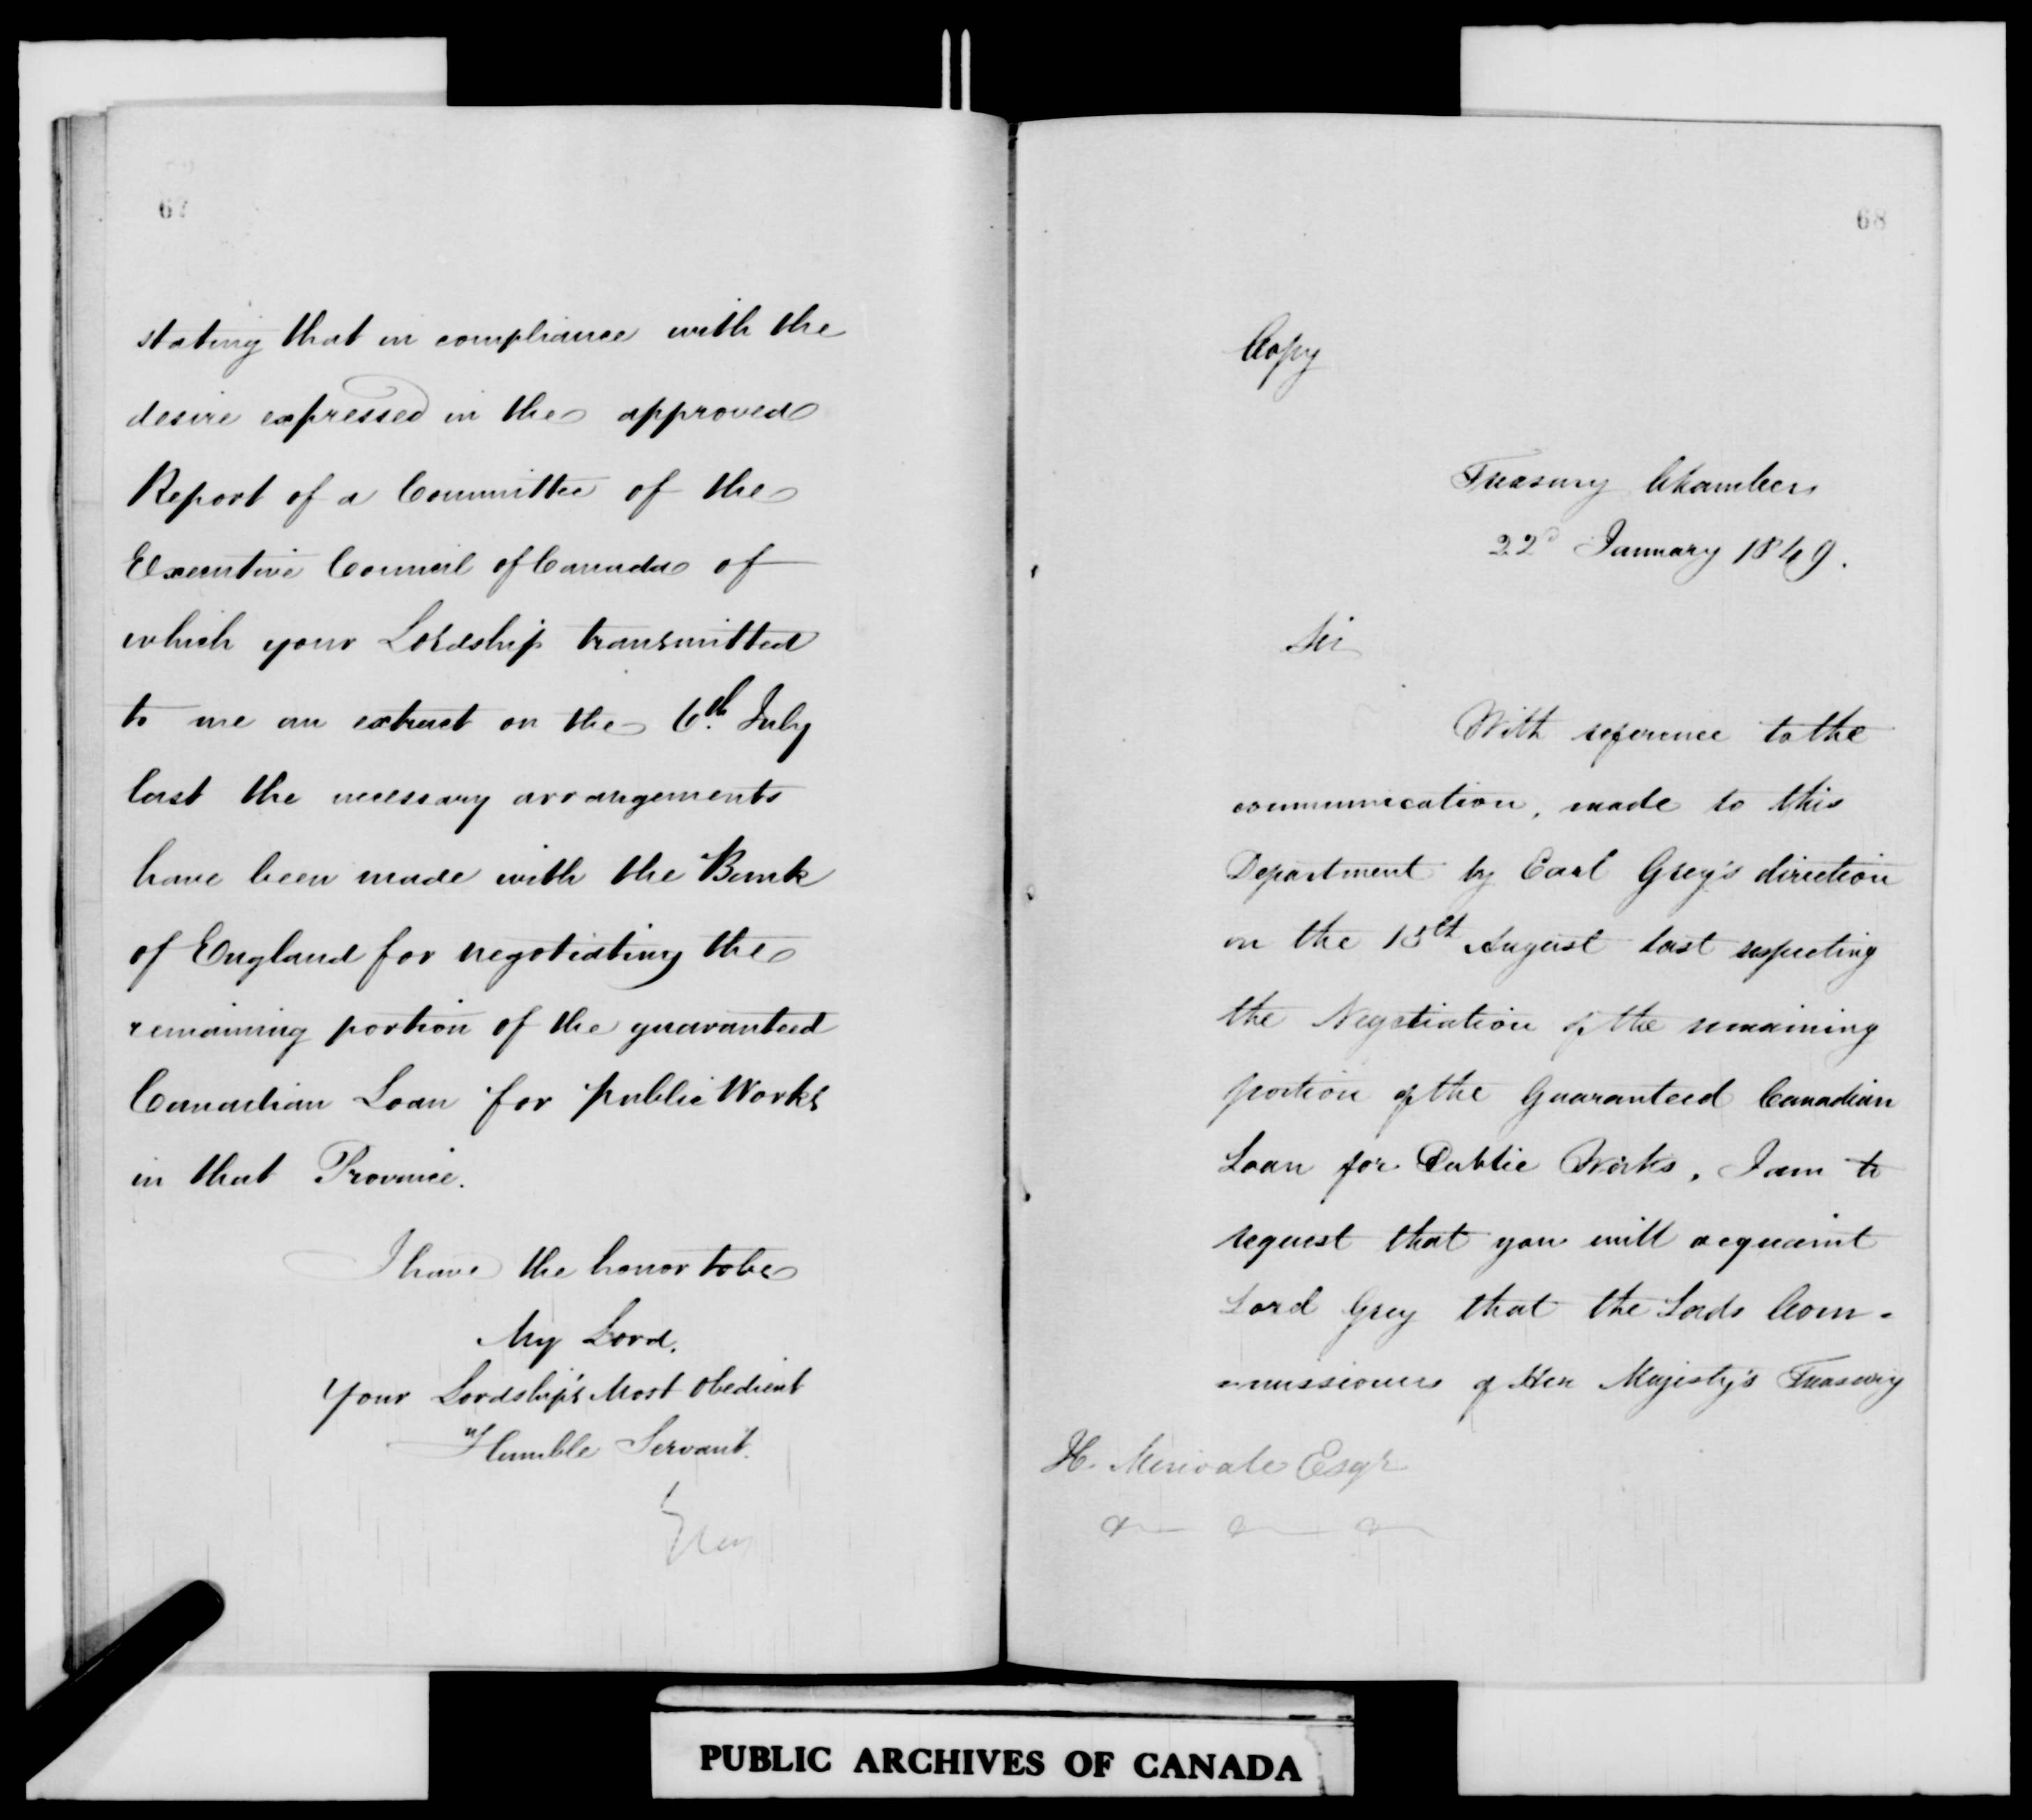 67
stating that in compliance with the
desire expressed in the approved
Report of a Committee of the
Executive Council of Canada of
which your Lordship transmitted
to me an extract on the 6th. July
last the necessary arrangements
have been made with the Bank
of England for negotiating the
remaining portion of the guaranteed
Canadian Loan for public Works
in that Province.
I have the honor to be
My Lord.
Your Lordship's Most Obedient
Humble Servant.
Grey
68
Copy
Treasury Chambers
22d January 1849.
Sir
With reference to the
communication, made to this
Department by Earl Grey's direction
on the 15th August last respecting
the Negotiation of the remaining
portion of the Guaranteed Canadian
Loan for Public Works, I am to
request that you will acquaint
Lord Grey that the Lords Com-
-missioners of Her Majesty's Treasury
H. Merivale Esqr
PUBLIC ARCHIVES OF CANADA